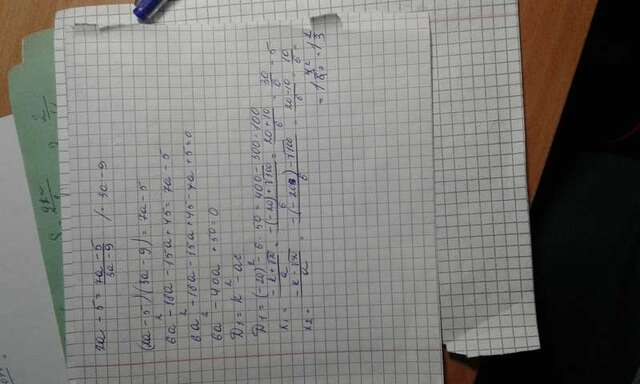 2a - 5 = \frac{7a - 5}{3a - 9} / · 3a - 9
(2a - 5)(3a - 9) = 7a - 5
6a² - 18a - 15a + 45 = 7a - 5
6a² - 18a - 15a + 45 - 7a + 5 = 0
6a² - 40a + 50 = 0
D₁ = k² - ac
D₁ = (-20)² - 6 · 50 = 400 - 300 = 100
x₁ = \frac{-k + √D₁}{a} = \frac{-(-20) + √100}{6} = \frac{20 + 10}{6} = \frac{30}{6} = 5
x₂ = \frac{-k - √D₁}{a} = \frac{-(-20) - √100}{6} = \frac{20 - 10}{6} = \frac{10}{6} =
= 1\frac{4}{6} = 1\frac{2}{3}